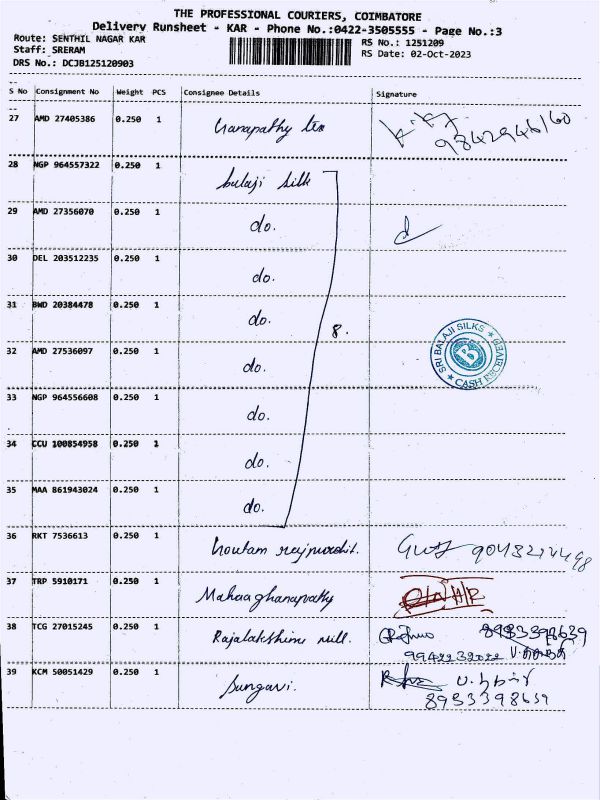 THE PROFESSIONAL COURIERS, COIMBATORE
Delivery Runsheet - KAR - Phone No.:0422-3505555 - Page No.:3
Route: SENTHIL NAGAR KAR
RS No.: 1251209
Staff: SRERAM
RS Date: 02-Oct-2023
DRS No.: DCJB125120903
S No Consignment No Weight PCS Consignee Details Signature
27 AMD 27405386 0.250 1 Ganapathy tex
28 NGP 964557322 0.250 1 balaji silk
29 AMD 27356070 0.250 1 do.
30 DEL 203512235 0.250 1 do.
31 BWD 20384478 0.250 1 do.
8.
32 AMD 27536097 0.250 1 do.
SRI BALAJI SILKS
B
CASH RECEIVED
33 NGP 964556608 0.250 1 do.
34 CCU 100854958 0.250 1 do.
35 MAA 861943024 0.250 1 do.
36 RKT 7536613 0.250 1
37 TRP 5910171 0.250 1 Mahaaghanapathy
38 TCG 27015245 0.250 1 Rajalakshime mill. 8953398639
9942232022
39 KCM 50051429 0.250 1 Sungavi.
8953398639